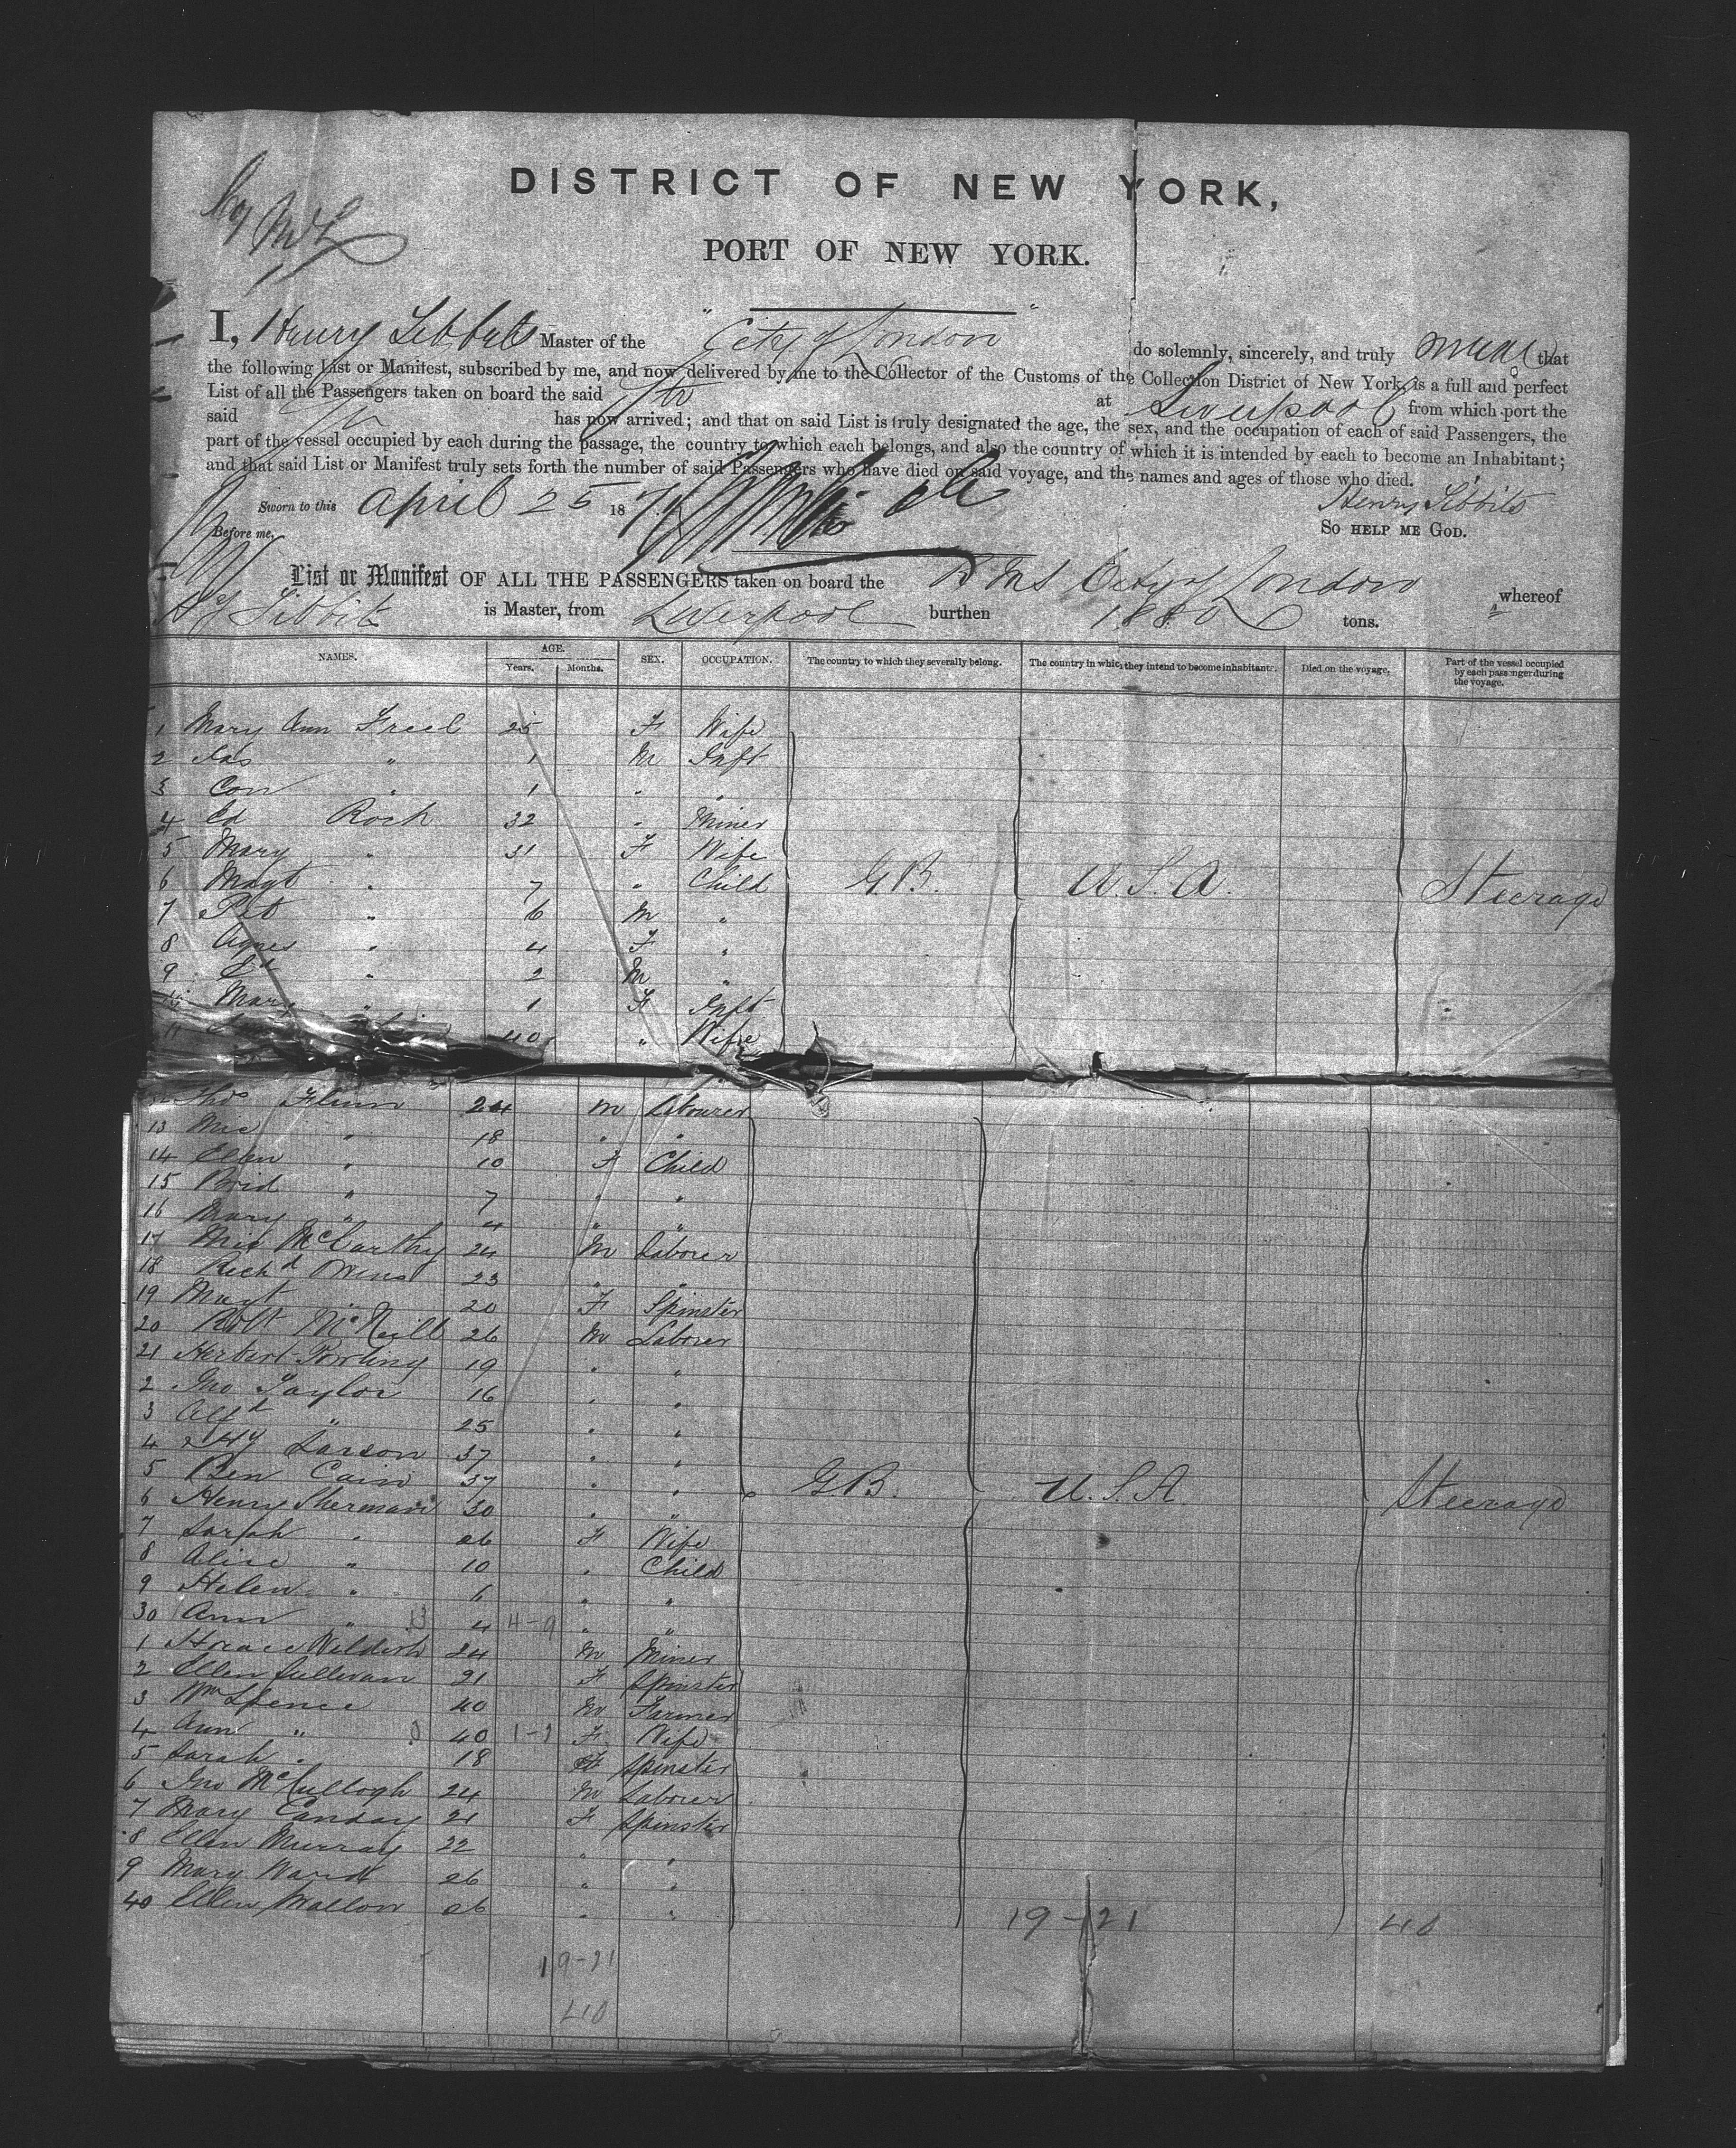 DISTRICT OF NEW YORK,
PORT OF NEW YORK.
I, Henry Tibbits Master of the "City of London" do solemnly, sincerely, and truly swear that
the following List or Manifest, subscribed by me, and now delivered by me to the Collector of the Customs of the Collection District of New York, is a full and perfect
List of all the Passengers taken on board the said Str at Liverpool from which port the
said Str has now arrived; and that on said List is truly designated the age, the sex, and the occupation of each of said Passengers, the
part of the vessel occupied by each during the passage, the country to which each belongs, and also the country of which it is intended by each to become an Inhabitant;
and that said List or Manifest truly sets forth the number of said Passengers who have died on said voyage, and the names and ages of those who died.
Sworn to this April 25 187 Henry Tibbits
Before me, So HELP ME GOD.
List or Manifest OF ALL THE PASSENGERS taken on board the City of London whereof
Hy Tibbits is Master, from Liverpool burthen 1880 tons.
NAMES. AGE. Years. Months. SEX. OCCUPATION. The country to which they severally belong. The country in which they intend to become inhabitants. Died on the voyage. Part of the vessel occupied by each passenger during the voyage.
1 Mary Ann Freel 25 F Wife
2 Jas " 1 M Inft
3 Con " 1 " "
4 Ed Rock 32 " Miner
5 Mary " 31 F Wife
6 Magt " 7 " Child G.B. U.S.A. Steerage
7 Pat " 6 M "
8 Agnes " 4 F "
9 Ed " 2 M "
10 Mary " 1 F Inft
11 40 " Wife
Thos Flinn 24 M Labourer
13 Mic " 18 " "
14 Ellen " 10 F Child
15 Brid " 7 " "
16 Mary " 4 " "
17 Mic McCarthy 24 M Laborer
18 Richd Owens 23 " "
19 Magt " 20 F Spinster
20 Robt McNeill 26 M Laborer
21 Herbert 19 " "
2 Jno Taylor 16 " "
3 Alfd " 25 " "
4 Hy Larson 37 " "
5 Ben Cain 37 " " G.B. U.S.A Steerage
6 Henry Sherman 30 " "
7 Sarah " 26 F Wife
8 Alice " 10 " Child
9 Helen " 6 " "
30 Ann " 4 4-9 " "
1 Horace 24 M Miner
2 Ellen Sullivan 21 F Spinster
3 Wm Spence 40 M Farmer
4 Ann " 40 1-1 F Wife
5 Sarah " 18 F Spinster
6 Jno McCullogh 24 M Laborer
7 Mary 21 F Spinster
8 Ellen Murray 22 " "
9 Mary Ward 26 " "
40 Ellen Mallon 26 " "
19-21 40
19-21
40